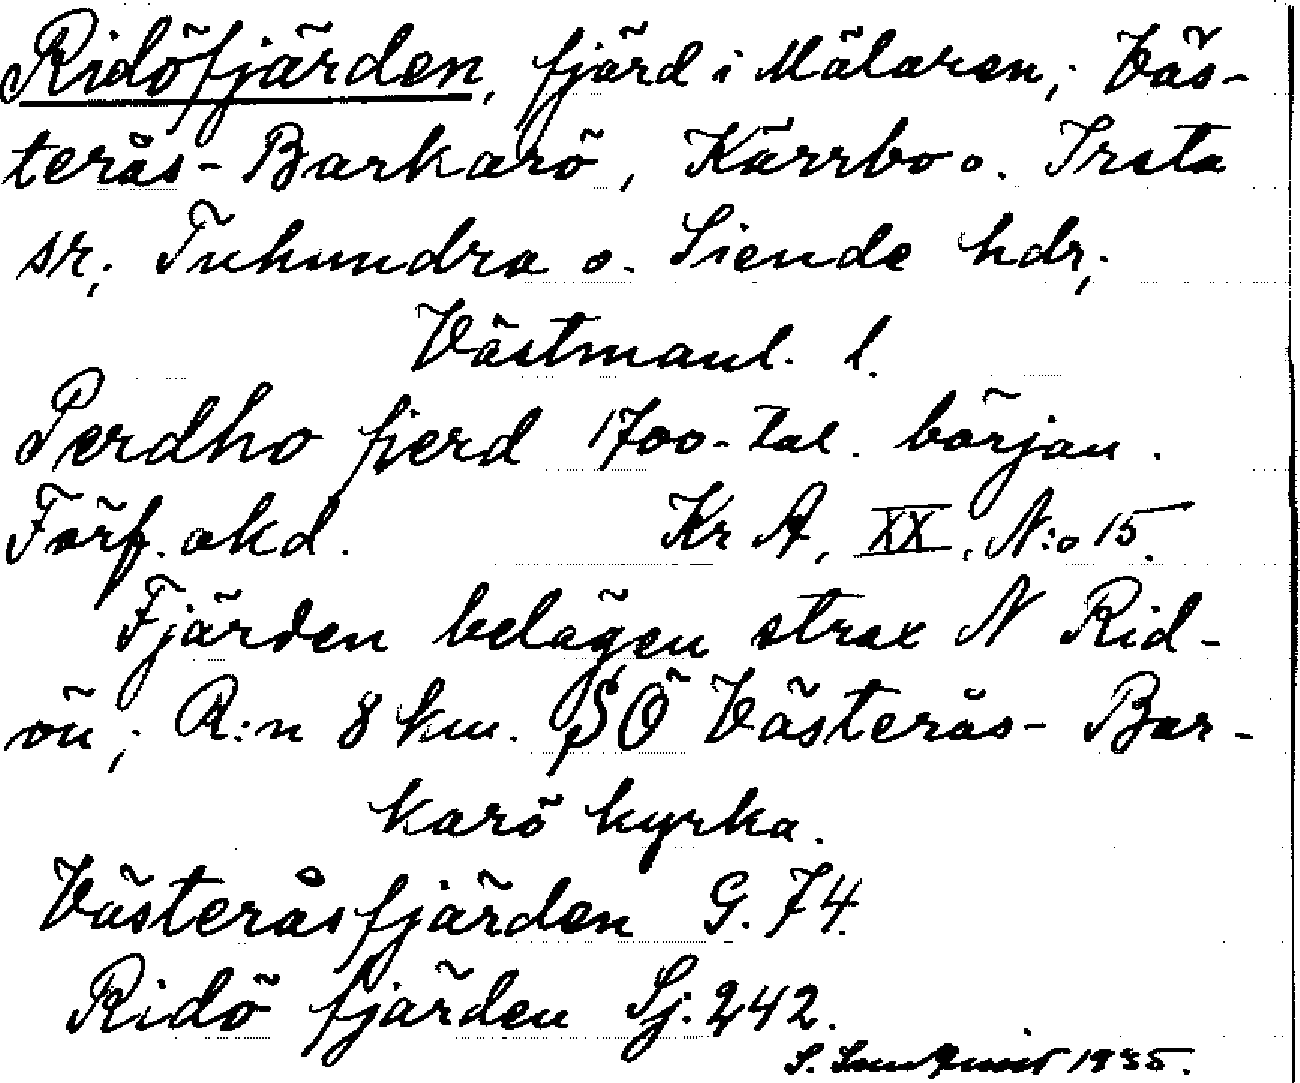 Ridöfjärden, fjärd i Mälaren; Väs-
terås-Barkarö, Kärrbo o. Irsta
sr; Tuhundra o. Siende hdr;
Västmanl. l.
Perdho fjerd 1700-tal. början.
Förf. okd. Kr A, XX, N:o 15.
Fjärden belägen strax N Rid-
ön; R:n 8 km. SÖ Västerås-Bar-
karö kyrka.
Västeråsfjärden G. 74.
Ridö fjärden Sj. 242.
S. 1935.